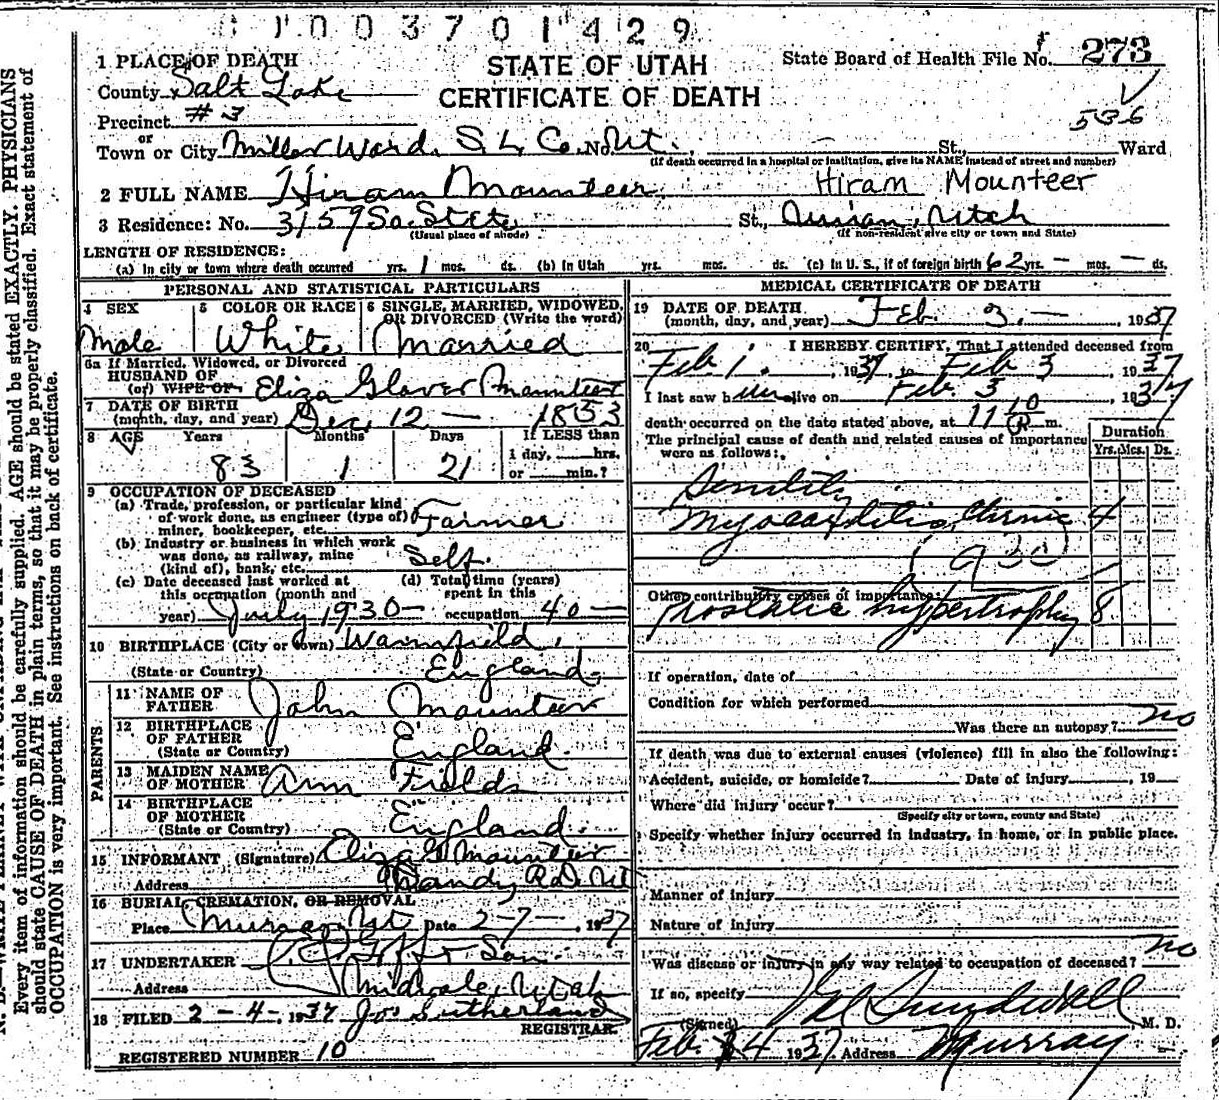 003701429
STATE OF UTAH
CERTIFICATE OF DEATH
State Board of Health File No. 273
536
1 PLACE OF DEATH
County Salt Lake
Precinct #3
or
Town or City Miller Ward. S. L. Co. No. Ut. St., Ward
(If death occurred in a hospital or institution, give its NAME instead of street and number)
2 FULL NAME Hiram Mounteer Hiram Mounteer
3 Residence: No. 3159 So. State St., Utah
(Usual place of abode) (If non-resident give city or town and State)
LENGTH OF RESIDENCE:
(a) In city or town where death occurred yrs. 1 mos. ds. (b) In Utah yrs. mos. ds. (c) In U. S., if of foreign birth 62 yrs. — mos. — ds.
PERSONAL AND STATISTICAL PARTICULARS
4 SEX 5 COLOR OR RACE 6 SINGLE, MARRIED, WIDOWED, OR DIVORCED (Write the word)
Male White Married
6a If Married, Widowed, or Divorced
HUSBAND OF
(or) WIFE OF Eliza Glover Mounteer
7 DATE OF BIRTH
(month, day, and year) Dec. 12 — 1853
8 AGE Years Months Days If LESS than
1 day, hrs.
83 1 21 or min.?
9 OCCUPATION OF DECEASED
(a) Trade, profession, or particular kind
of work done, as engineer (type of) Farmer
miner, bookkeeper, etc.
(b) Industry or business in which work
was done, as railway, mine Self.
(kind of), bank, etc.
(c) Date deceased last worked at (d) Total time (years)
this occupation (month and spent in this
year) July 1930 — occupation 40 —
10 BIRTHPLACE (City or town) Warmfield,
(State or Country) England
PARENTS
11 NAME OF
FATHER John Mounteer
12 BIRTHPLACE
OF FATHER England.
(State or Country)
13 MAIDEN NAME
OF MOTHER Ann Fields
14 BIRTHPLACE
OF MOTHER England.
(State or Country)
15 INFORMANT (Signature) Eliza G Mounteer
Address Sandy R.D. Ut
16 BURIAL, CREMATION, OR REMOVAL
Place Murray Ut Date 2-7- , 1937
17 UNDERTAKER Goff & Son.
Address Midvale, Utah
18 FILED 2-4-, 1937 Jos Sutherland
REGISTRAR.
REGISTERED NUMBER 10
MEDICAL CERTIFICATE OF DEATH
19 DATE OF DEATH
(month, day, and year) Feb. 3. — , 1937
20 I HEREBY CERTIFY, That I attended deceased from
Feb 1. , 1937, to Feb 3 , 1937
I last saw him alive on Feb. 3 , 1937
death occurred on the date stated above, at 11 10 P. m.
The principal cause of death and related causes of importance
were as follows:
Duration
Yrs. Mos. Ds.
Senility
Myocarditis, Chronic 4
(930)
Other contributory causes of importance:
Prostatic hypertrophy 8
If operation, date of
Condition for which performed
Was there an autopsy? no
If death was due to external causes (violence) fill in also the following:
Accident, suicide, or homicide? Date of injury , 19
Where did injury occur?
(Specify city or town, county and State)
Specify whether injury occurred in industry, in home, or in public place.
Manner of injury
Nature of injury
Was disease or injury in any way related to occupation of deceased? no
If so, specify
(Signed) M. D.
Feb. 4 1937 Address Murray
Every item of information should be carefully supplied. AGE should be stated EXACTLY. PHYSICIANS
should state CAUSE OF DEATH in plain terms, so that it may be properly classified. Exact statement of
OCCUPATION is very important. See instructions on back of certificate.